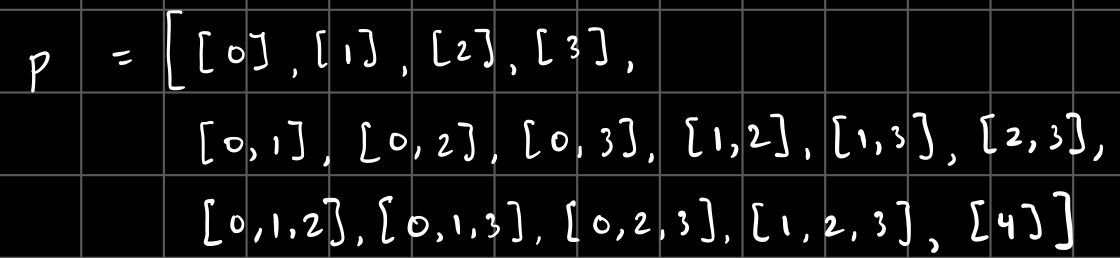 p = [[0], [1], [2], [3],
[0,1], [0,2], [0,3], [1,2], [1,3], [2,3],
[0,1,2], [0,1,3], [0,2,3], [1,2,3], [4]]